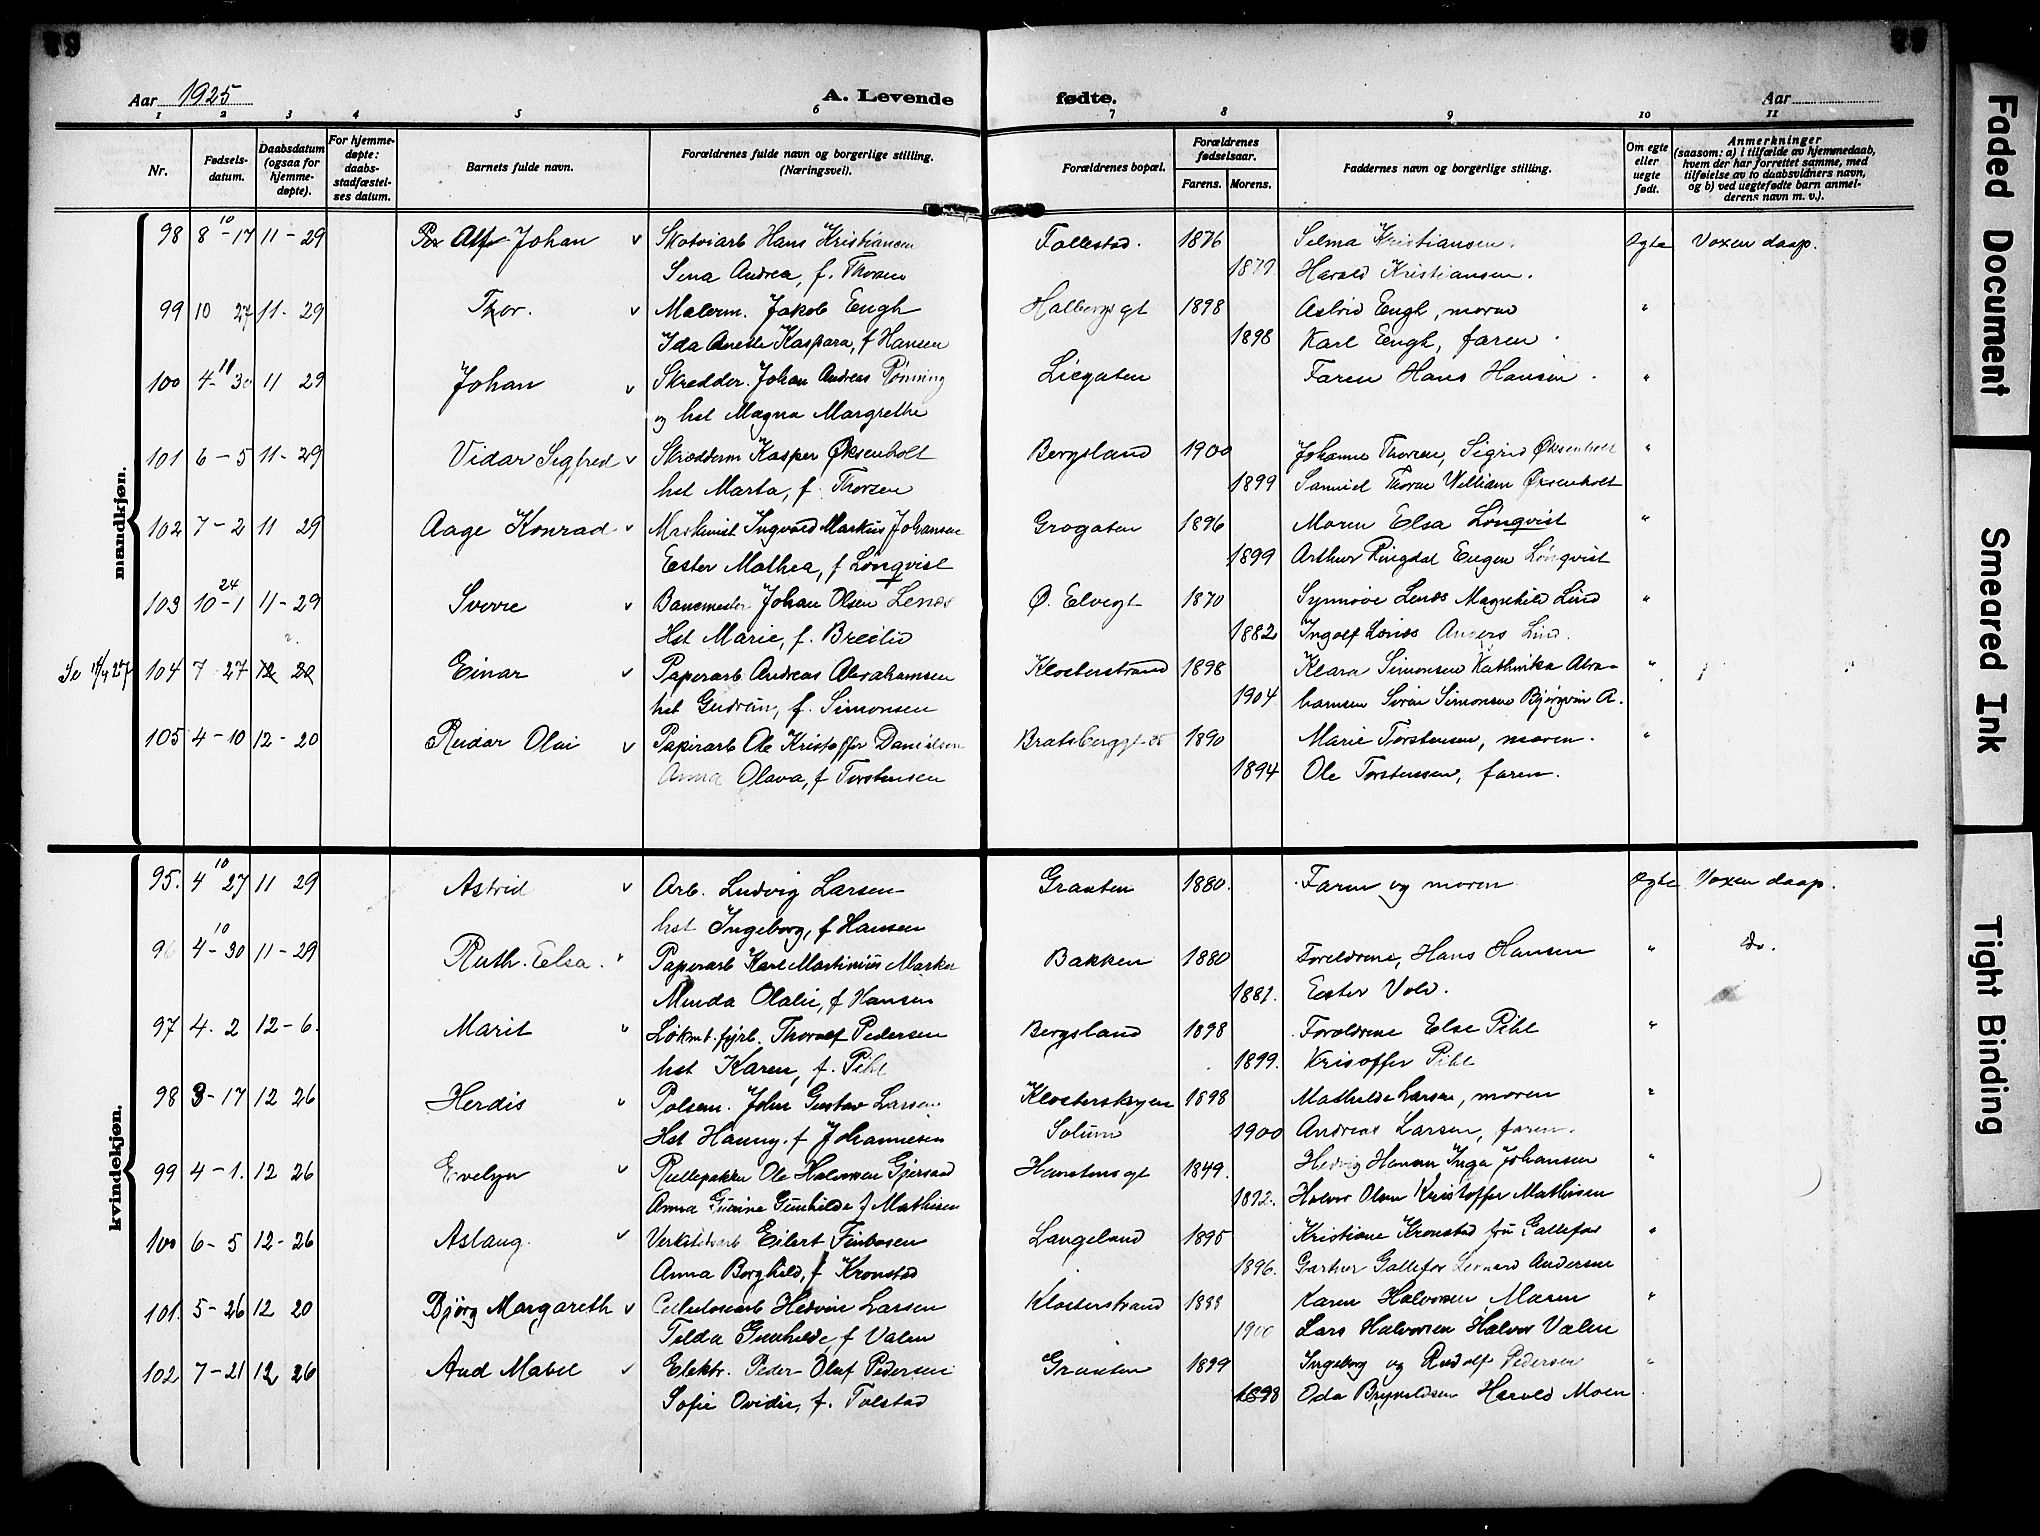 Aar 1925
A. Levende fødte.
Aar
1 2 3 4 5 6 7 8 9 10 11
Nr.
Fødsels-
datum.
Daabsdatum
(ogsaa for
hjemme-
døpte).
For hjemme-
døpte:
daabs-
stadfæstel-
ses datum.
Barnets fulde navn.
Forældrenes fulde navn og borgerlige stilling.
(Næringsvei).
Forældrenes bopæl.
Forældrenes
fødselsaar.
Farens. Morens.
Faddernes navn og borgerlige stilling.
Om egte
eller
uegte
født.
Anmerkninger
(saasom: a) i tilfælde av hjemmedaab,
hvem der har forrettet samme, med
tilføielse av to daabsvidners navn,
og b) ved uegtefødte barn anmel-
derens navn m. v.).
mandkjøn.
98 8-10 17 11-29 Alf Johan v Skotøiarb Hans Kristiansen Follestad. 1876 Selma Kristiansen. Ægte Voxen daap.
Sena Andrea, f. Thorsen 1879 Harald Kristiansen.
99 10 27 11-29 Thor. v Malerm. Jakob Engh Halbergs gt 1898 Astrid Engh, moren "
Ida Anette Kaspara, f Hansen 1898 Karl Engh, faren.
100 4-10 30 11 29 Johan v Skredder. Johan Andreas Rønning Liegaten Faren Hans Hansen. "
og hst Magna Margrethe
101 6-5 11-29 Vidar Sigfred v Skrædderm Kasper Øksenholt Bergsland 1900 Johanne Thorsen, Sigrid Øksenholt "
hst Marta, f. Thorsen 1899 Samuel Thorsen William Øksenholt
102 7-2 11 29 Aage Konrad v Maskinist Ingvard Markus Johansen Grogaten 1896 Moren Elsa Lönqvist "
Ester Mathea, f Lönqvist 1899 Arthur Ringdal Eugen Lönqvist
103 10-24 1 11-29 Sverre v Banemester Johan Olsen Lenes Ø. Elvegt 1870 Synnöve Lenes Magnhild Lind "
Hst Marie, f. Breilid 1882 Ingolf Lenes Anders Lind.
104 7 27 12 20 Einar v Paperarb Andreas Abrahamsen Klosterstrand 1898 Klara Simonsen Kathinka Abra- "
hst Gudrun, f. Simonsen 1904 hamsen Sören Simonsen Bjørgvin A.
105 4-10 12-20 Reidar Olai v Papirarb Ole Kristoffer Danielsen Bratsberggt 25 1890 Marie Torstensen, moren. "
Anna Olava, f Torstensen 1894 Ole Torstensen, faren.
kvindekjøn.
95. 4 10 27 11 29 Astrid v Arb. Ludvig Larsen Graaten 1880. Faren og moren Ægte Voxen daap.
hst Ingeborg, f Hansen
96 4-10 30 11-29 Ruth Elsa. v Paperarb Karl Martinius Marker Bakken 1880 Foreldrene, Hans Hansen " do.
Minda Olalie, f Hansen 1881. Ester Vold.
97 4. 2 12-6. Marit " Lokmt. fyrb. Thoralf Pedersen Bergsland 1898 Foreldrene Else Pihl "
hst Karen, f. Pihl 1899. Krisoffer Pihl
98 3-17 12 26 Herdis " Polsem. John Gustav Larsen Klosterskogen 1898 Mathilde Larsen, moren "
Hst Hanny. f Johannesen Solum 1900 Andreas Larsen, faren.
99 4-1. 12 26 Evelyn v Rullepakker Ole Halvorsen Gjersad Hanstensgt 1849. Hedvig Hansen Inga Johansen "
Anna Gurine Gunhilde f Mathisen 1892. Halvor Olsen Kristoffer Mathisen
100 6-5 12-26 Aslaug. v Verkstedsarb Eilert Finbosen Langeland 1895 Kristiane Kronstad fru Gallefos "
Anna Borghild, f Kronstad 1896. Gartner Gallefos Leonard Andersen
101. 5-26 12 20 Bjørg Margareth v Cellulosearb Hedvin Larsen Klosterstrand 1899 Karen Halvorsen, Maren "
Telda Gunhilde f Valen 1900 Lars Halvorsen Halvor Valen
102 7-21 12 26 Aud Mabel v Elektr. Peder Oluf Pedersen Graaten 1899 Ingeborg og Rudolf Pedersen "
Sofie Ovidie, f. Tolstad 1898 Oda Brynildsen Harald Moen
Faded Document
Smeared Ink
Tight Binding